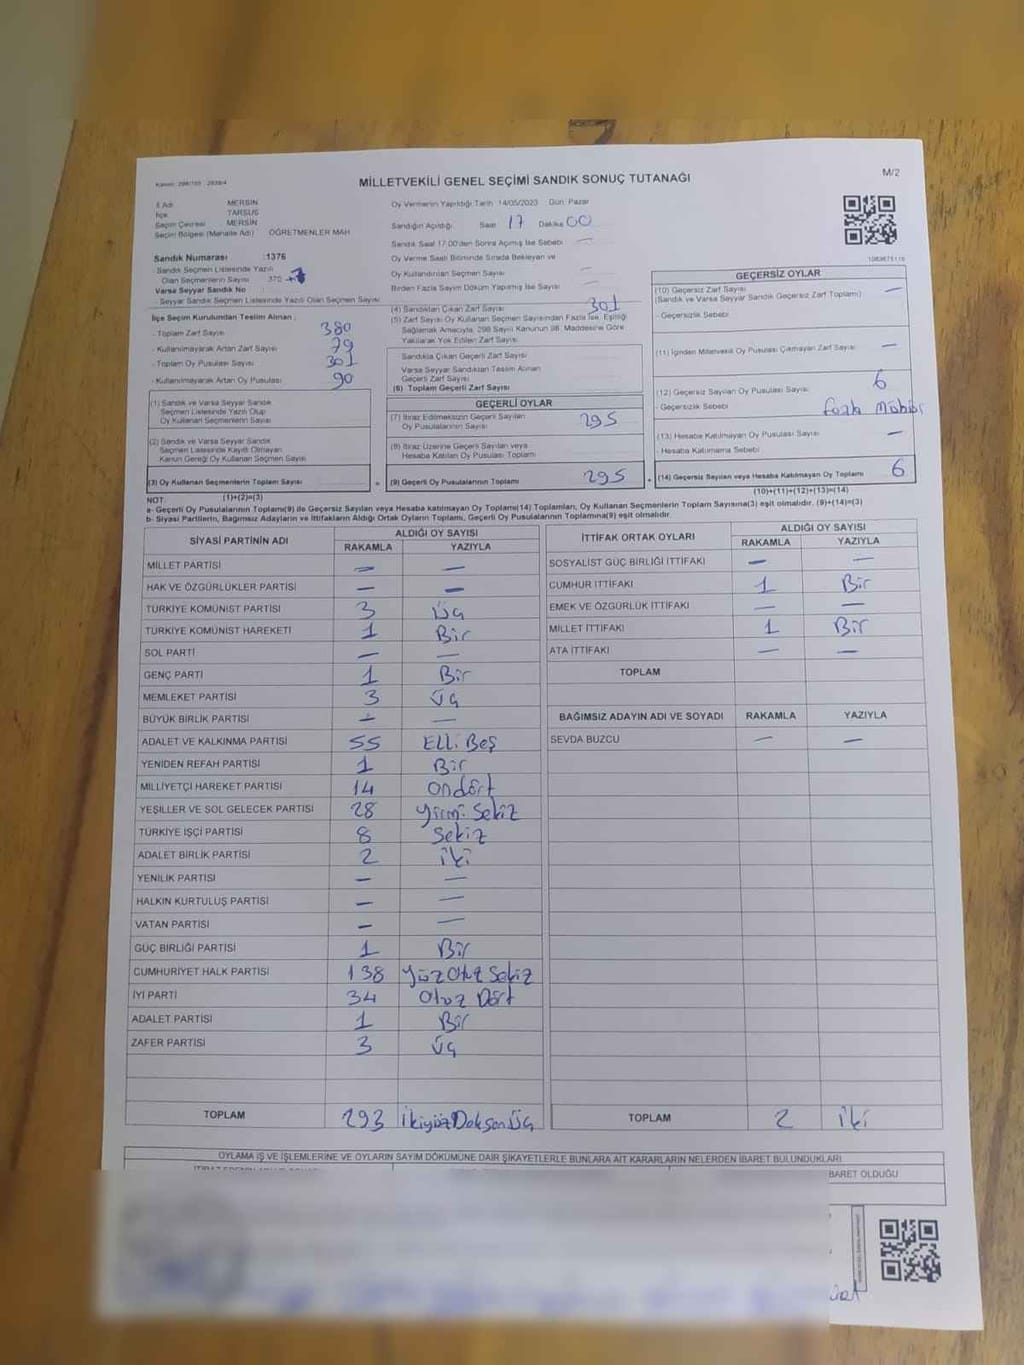 Kanun: 298/105 : 2839/4
MİLLETVEKİLİ GENEL SEÇİMİ SANDIK SONUÇ TUTANAĞI
M/2
İl Adı MERSİN
İlçe TARSUS
Seçim Çevresi MERSİN
Seçim Bölgesi (Mahalle Adı) ÖĞRETMENLER MAH
Oy Vermenin Yapıldığı Tarih 14/05/2023 Gün: Pazar
Sandığın Açıldığı Saat 17 Dakika 00
Sandık Saat 17.00'den Sonra Açılmış İse Sebebi —
Oy Verme Saati Bitiminde Sırada Bekleyen ve
Oy Kullandırılan Seçmen Sayısı —
Birden Fazla Sayım Döküm Yapılmış İse Sayısı —
Sandık Numarası :1376
Sandık Seçmen Listesinde Yazılı
Olan Seçmenlerin Sayısı 370
Varsa Seyyar Sandık No
Seyyar Sandık Seçmen Listesinde Yazılı Olan Seçmen Sayısı
İlçe Seçim Kurulundan Teslim Alınan :
- Toplam Zarf Sayısı 380
- Kullanılmayarak Artan Zarf Sayısı 79
- Toplam Oy Pusulası Sayısı 301
- Kullanılmayarak Artan Oy Pusulası 90
(1) Sandık ve Varsa Seyyar Sandık
Seçmen Listesinde Yazılı Olup
Oy Kullanan Seçmenlerin Sayısı
(2) Sandık ve Varsa Seyyar Sandık
Seçmen Listesinde Kayıtlı Olmayan
Kanun Gereği Oy Kullanan Seçmen Sayısı
(3) Oy Kullanan Seçmenlerin Toplam Sayısı
(1)+(2)=(3)
(4) Sandıktan Çıkan Zarf Sayısı 301
(5) Zarf Sayısı Oy Kullanan Seçmen Sayısından Fazla İse, Eşitliği
Sağlamak Amacıyla, 298 Sayılı Kanunun 98. Maddesine Göre
Yakılarak Yok Edilen Zarf Sayısı
Sandıkta Çıkan Geçerli Zarf Sayısı
Varsa Seyyar Sandıktan Teslim Alınan
Geçerli Zarf Sayısı
(6) Toplam Geçerli Zarf Sayısı
GEÇERLİ OYLAR
(7) İtiraz Edilmeksizin Geçerli Sayılan
Oy Pusulalarının Sayısı 295
(8) İtiraz Üzerine Geçerli Sayılan veya
Hesaba Katılan Oy Pusulası Toplamı
= (9) Geçerli Oy Pusulalarının Toplamı 295
GEÇERSİZ OYLAR
(10) Geçersiz Zarf Sayısı —
(Sandık ve Varsa Seyyar Sandık Geçersiz Zarf Toplamı)
- Geçersizlik Sebebi
(11) İçinden Milletvekili Oy Pusulası Çıkmayan Zarf Sayısı —
(12) Geçersiz Sayılan Oy Pusulası Sayısı 6
- Geçersizlik Sebebi fazla Mühür
(13) Hesaba Katılmayan Oy Pusulası Sayısı —
- Hesaba Katılmama Sebebi
+ (14) Geçersiz Sayılan veya Hesaba Katılmayan Oy Toplamı 6
(10)+(11)+(12)+(13)=(14)
NOT:
a- Geçerli Oy Pusulaları Toplamı(9) ile Geçersiz Sayılan veya Hesaba katılmayan Oy Toplamı(14) Toplamları, Oy Kullanan Seçmenlerin Toplam Sayısına(3) eşit olmalıdır. (9)+(14)=(3)
b- Siyasi Partilerin, Bağımsız Adayların ve İttifakların Aldığı Ortak Oyların Toplamı, Geçerli Oy Pusulalarının Toplamına(9) eşit olmalıdır
SİYASİ PARTİNİN ADI ALDIĞI OY SAYISI
RAKAMLA YAZIYLA
MİLLET PARTİSİ — —
HAK VE ÖZGÜRLÜKLER PARTİSİ — —
TÜRKİYE KOMÜNİST PARTİSİ 3 Üç
TÜRKİYE KOMÜNİST HAREKETİ 1 Bir
SOL PARTİ — —
GENÇ PARTİ 1 Bir
MEMLEKET PARTİSİ 3 Üç
BÜYÜK BİRLİK PARTİSİ — —
ADALET VE KALKINMA PARTİSİ 55 Elli Beş
YENİDEN REFAH PARTİSİ 1 Bir
MİLLİYETÇİ HAREKET PARTİSİ 14 ondört
YEŞİLLER VE SOL GELECEK PARTİSİ 28 yirmi Sekiz
TÜRKİYE İŞÇİ PARTİSİ 8 Sekiz
ADALET BİRLİK PARTİSİ 2 iki
YENİLİK PARTİSİ — —
HALKIN KURTULUŞ PARTİSİ — —
VATAN PARTİSİ — —
GÜÇ BİRLİĞİ PARTİSİ 1 Bir
CUMHURİYET HALK PARTİSİ 138 yüz Otuz Sekiz
İYİ PARTİ 34 Otuz Dört
ADALET PARTİSİ 1 Bir
ZAFER PARTİSİ 3 Üç
TOPLAM 293 İkiyüzDoksanÜç
İTTİFAK ORTAK OYLARI ALDIĞI OY SAYISI
RAKAMLA YAZIYLA
SOSYALİST GÜÇ BİRLİĞİ İTTİFAKI — —
CUMHUR İTTİFAKI 1 Bir
EMEK VE ÖZGÜRLÜK İTTİFAKI — —
MİLLET İTTİFAKI 1 Bir
ATA İTTİFAKI — —
TOPLAM
BAĞIMSIZ ADAYIN ADI VE SOYADI RAKAMLA YAZIYLA
SEVDA BUZCU — —
TOPLAM 2 iki
OYLAMA İŞ VE İŞLEMLERİNE VE OYLARIN SAYIM DÖKÜMÜNE DAİR ŞİKAYETLERLE BUNLARA AİT KARARLARIN NELERDEN İBARET BULUNDUKLARI
BARET OLDUĞU